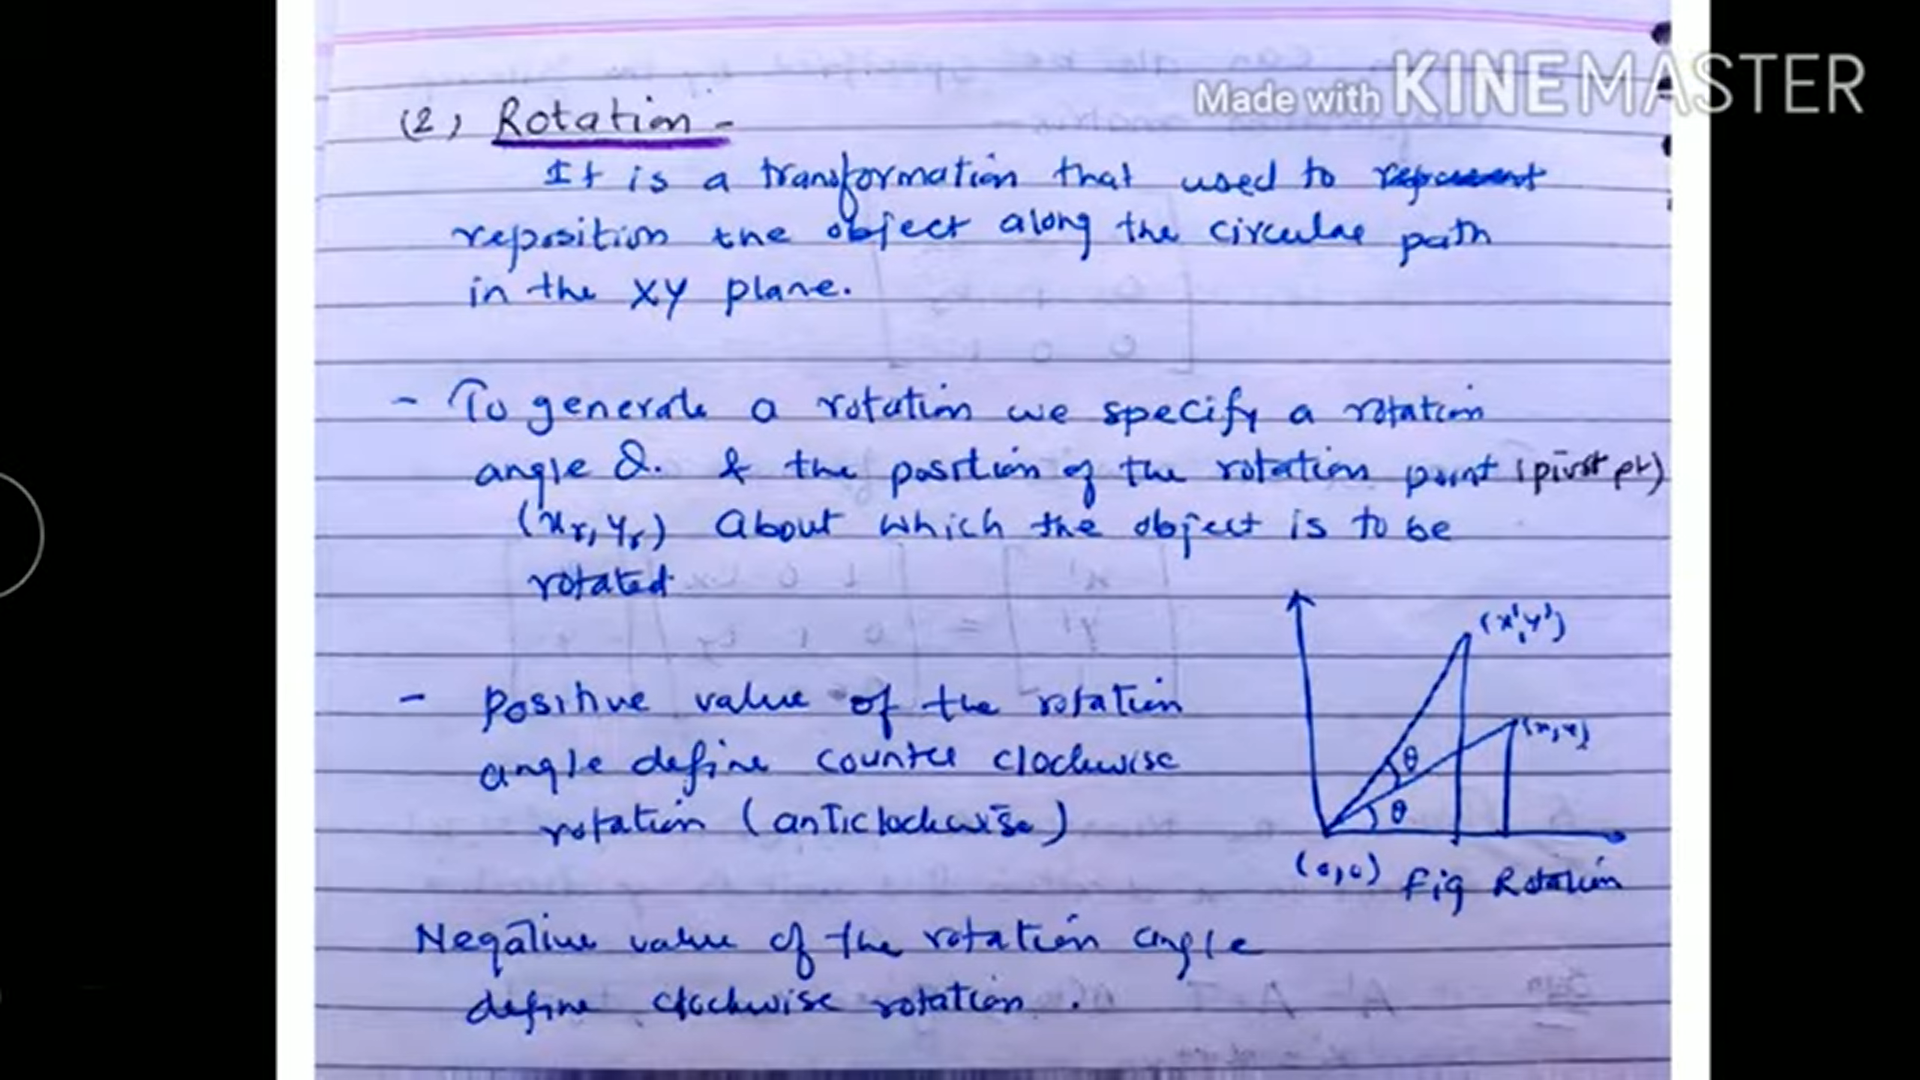 Made with KINEMASTER
(2) Rotation -
It is a transformation that used to represent
reposition the object along the circular path
in the xy plane.
- To generate a rotation we specify a rotation
angle θ. & the position of the rotation point (pivot pt)
(xr, yr) About which the object is to be
rotated
- positive value of the rotation
angle define counter clockwise
rotation (anticlockwise)
(x', y')
(x, y)
θ
θ
(0,0) Fig Rotation
Negative value of the rotation angle
define clockwise rotation.